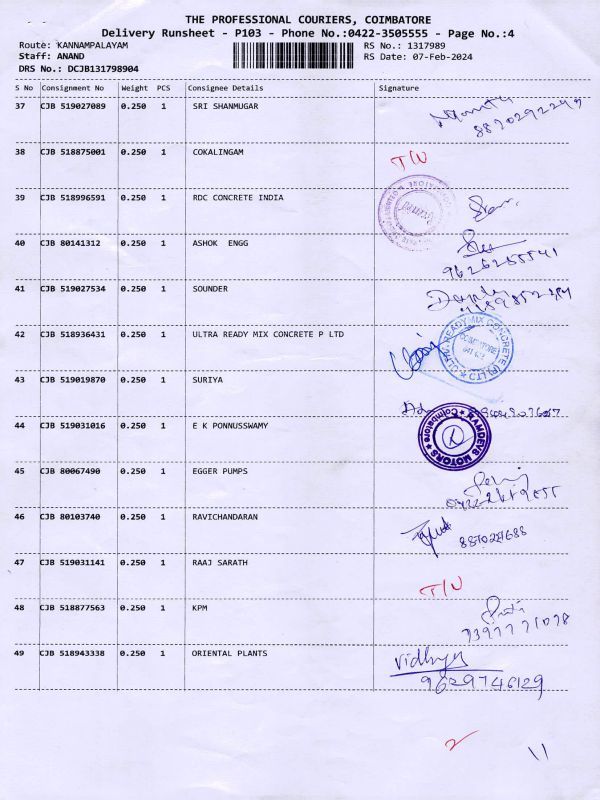 THE PROFESSIONAL COURIERS, COIMBATORE
Delivery Runsheet - P103 - Phone No.:0422-3505555 - Page No.:4
Route: KANNAMPALAYAM
RS No.: 1317989
Staff: ANAND
RS Date: 07-Feb-2024
DRS No.: DCJB131798904
S No Consignment No Weight PCS Consignee Details Signature
37 CJB 519027089 0.250 1 SRI SHANMUGAR
38 CJB 518875001 0.250 1 COKALINGAM T/N
39 CJB 518996591 0.250 1 RDC CONCRETE INDIA
40 CJB 80141312 0.250 1 ASHOK ENGG
41 CJB 519027534 0.250 1 SOUNDER
42 CJB 518936431 0.250 1 ULTRA READY MIX CONCRETE P LTD
ULTRA READYMIX CONCRETE (P) LTD
COIMBATORE
43 CJB 519019870 0.250 1 SURIYA
44 CJB 519031016 0.250 1 E K PONNUSSWAMY
RAMDEVS MOTORS
Coimbatore
45 CJB 80067490 0.250 1 EGGER PUMPS
46 CJB 80103740 0.250 1 RAVICHANDARAN
47 CJB 519031141 0.250 1 RAAJ SARATH T/N
48 CJB 518877563 0.250 1 KPM
7397771078
49 CJB 518943338 0.250 1 ORIENTAL PLANTS Vidhya
9629746129
2
11